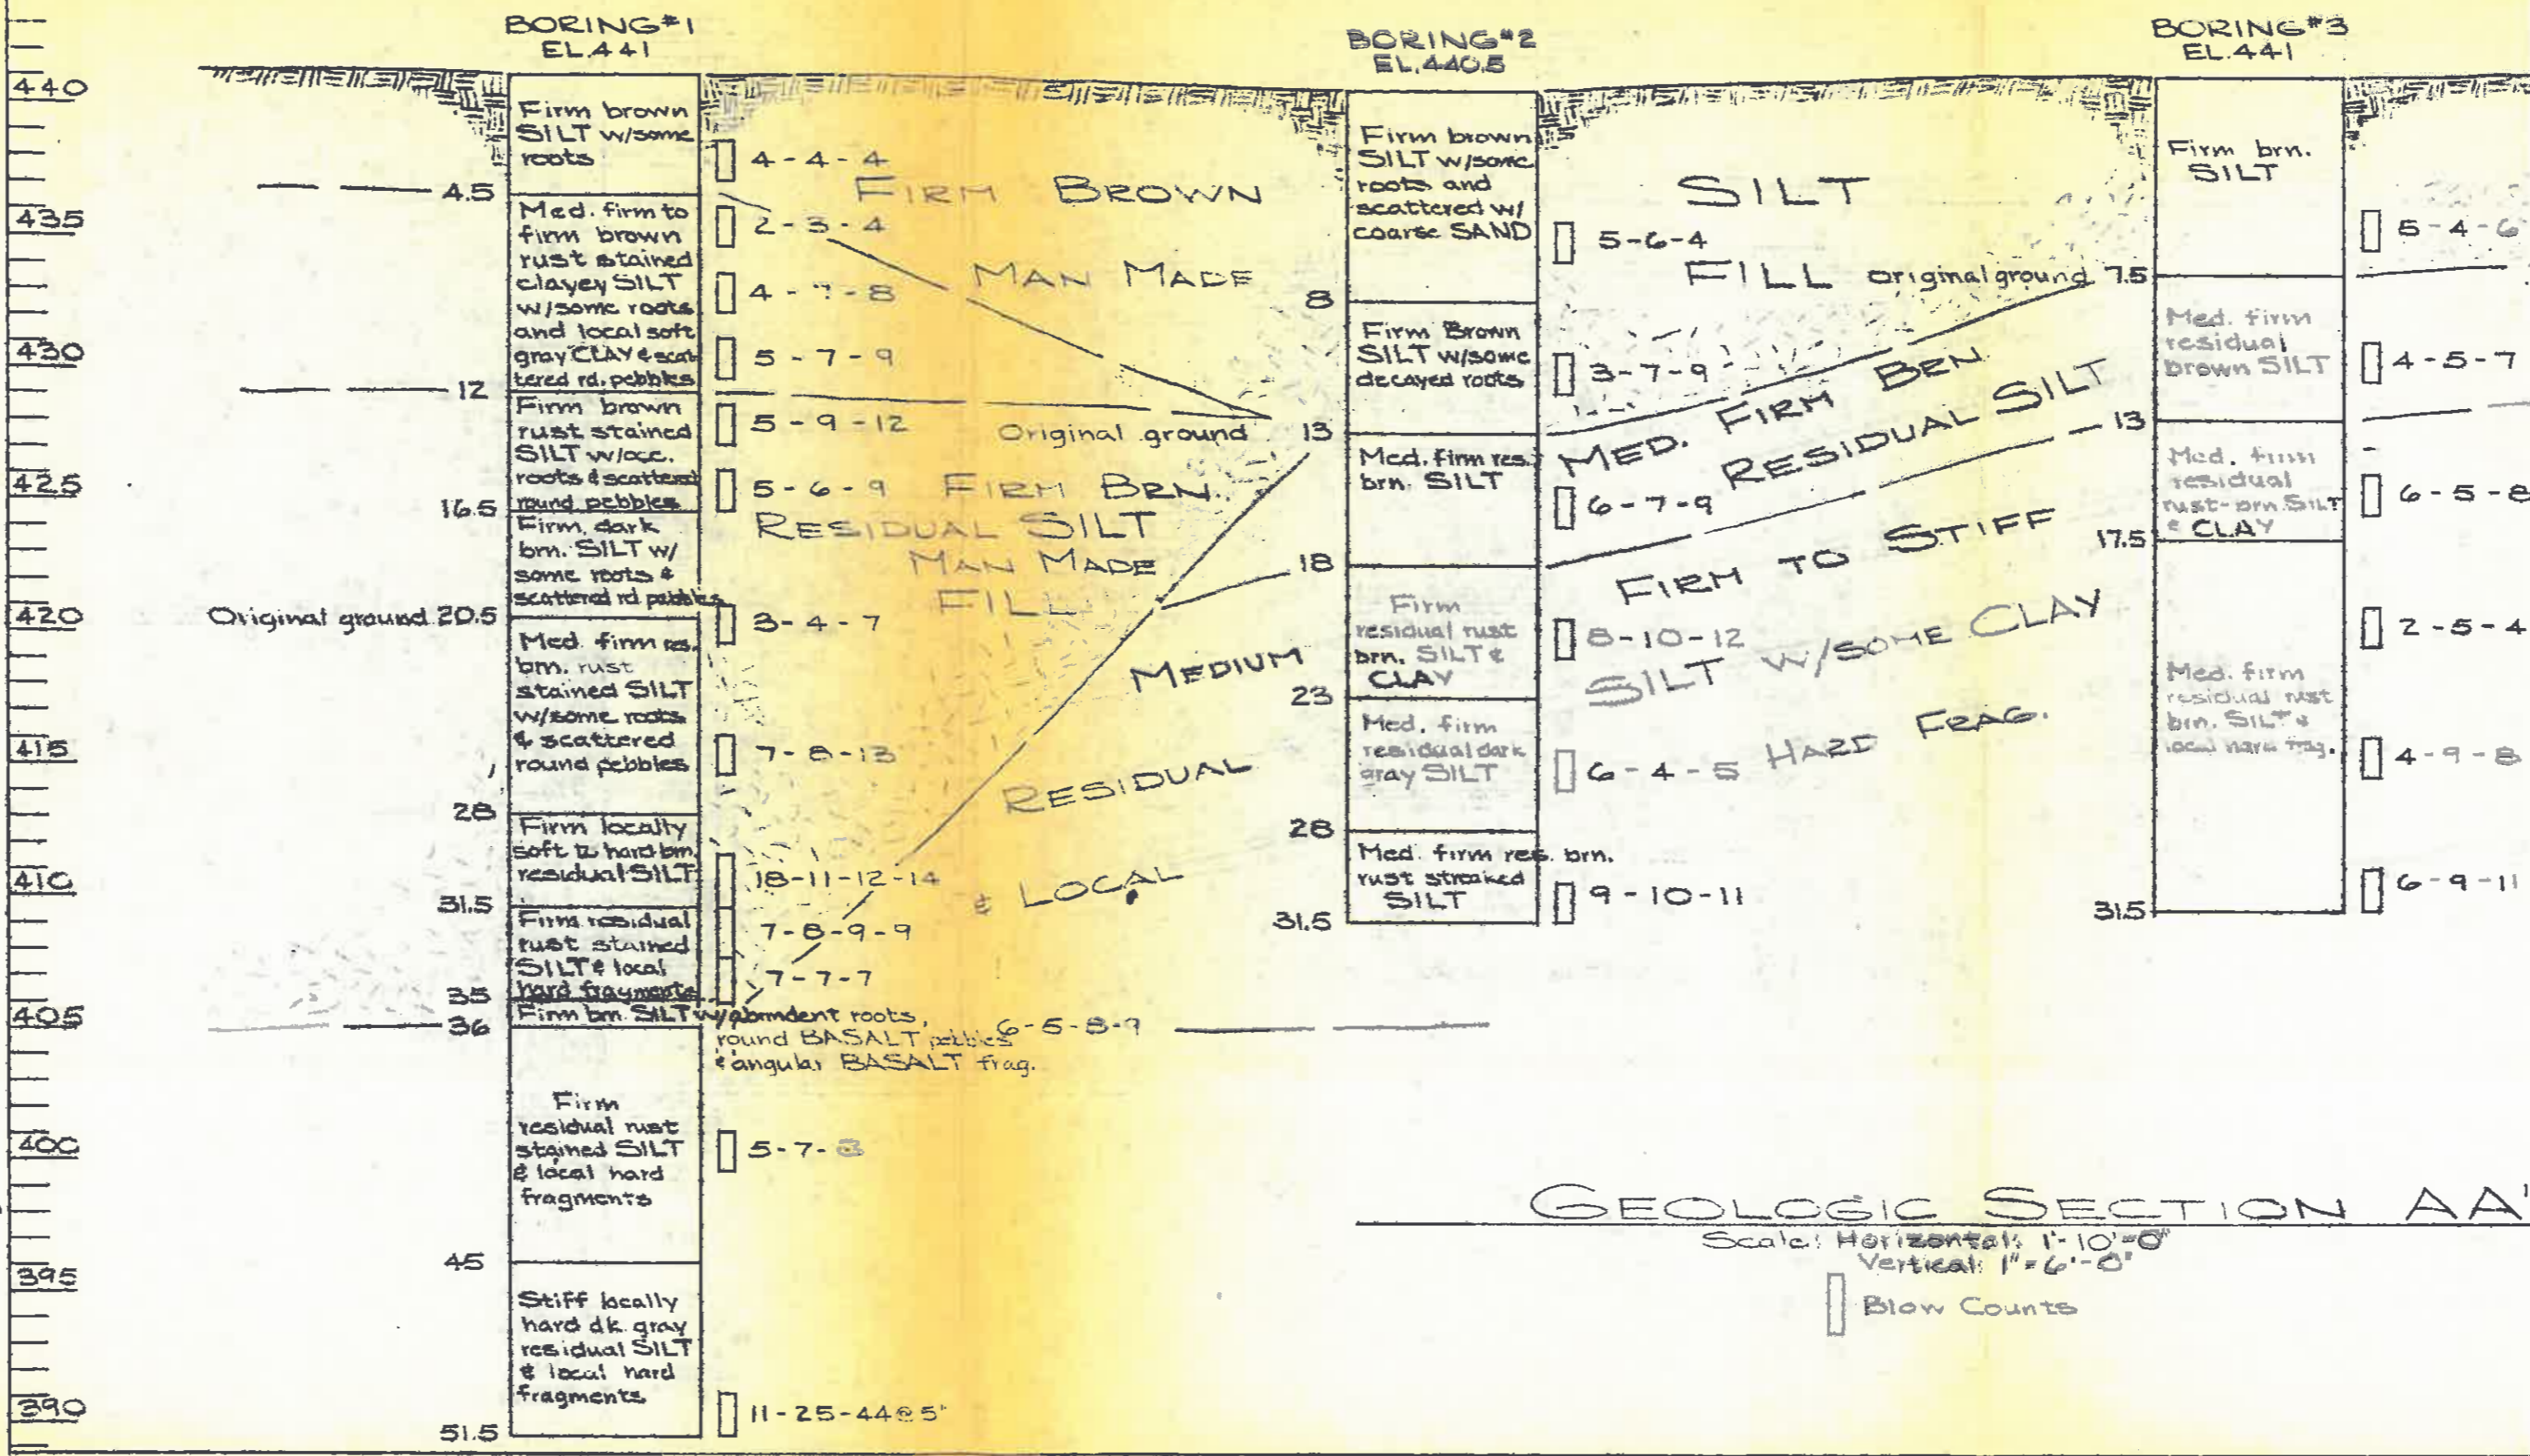 BORING #1
EL.441
BORING #2
EL.440.5
BORING #3
EL.441
440
435
430
425
420
415
410
405
400
395
390
4.5
12
16.5
Original ground 20.5
28
31.5
35
36
45
51.5
Firm brown
SILT w/some
roots
Med. firm to
firm brown
rust stained
clayey SILT
w/some roots
and local soft
gray CLAY & scat
tered rd. pebbles
Firm brown
rust stained
SILT w/occ.
roots & scattered
round pebbles
Firm, dark
brn. SILT w/
some roots &
scattered rd pebbles
Med. firm res.
brn. rust
stained SILT
w/some roots
& scattered
round pebbles
Firm locally
soft to hard brn.
residual SILT
Firm residual
rust stained
SILT & local
hard fragments
Firm brn. SILT w/abundent roots,
round BASALT pebbles
& angular BASALT frag.
Firm
residual rust
stained SILT
& local hard
fragments
Stiff locally
hard dk. gray
residual SILT
& local hard
fragments
4-4-4
2-3-4
4-7-8
5-7-9
5-9-12
5-6-9
3-4-7
7-8-13
18-11-12-14
7-8-9-9
7-7-7
6-5-8-9
5-7-8
11-25-44@5"
FIRM BROWN
SILT
MAN MADE
FILL
Original ground
FIRM BRN.
RESIDUAL SILT
MAN MADE
FILL
MEDIUM
RESIDUAL
& LOCAL
8
13
18
23
28
31.5
Firm brown
SILT w/some
roots and
scattered w/
coarse SAND
Firm Brown
SILT w/some
decayed roots
Med. firm res.
brn. SILT
Firm
residual rust
brn. SILT &
CLAY
Med. firm
residual dark
gray SILT
Med. firm res. brn.
rust streaked
SILT
5-6-4
3-7-9
6-7-9
8-10-12
6-4-5
9-10-11
original ground 7.5
MED. FIRM BRN.
RESIDUAL SILT
FIRM TO STIFF
SILT W/SOME CLAY
HARD FRAG.
13
17.5
31.5
Firm brn.
SILT
Med. firm
residual
brown SILT
Med. firm
residual
rust-brn. SILT
& CLAY
Med. firm
residual rust
brn. SILT &
local hard frag.
5-4-6
4-5-7
6-5-8
2-5-4
4-9-8
6-9-11
GEOLOGIC SECTION AA'
Scale: Horizontal: 1"-10'-0"
Vertical: 1"=6'-0"
Blow Counts